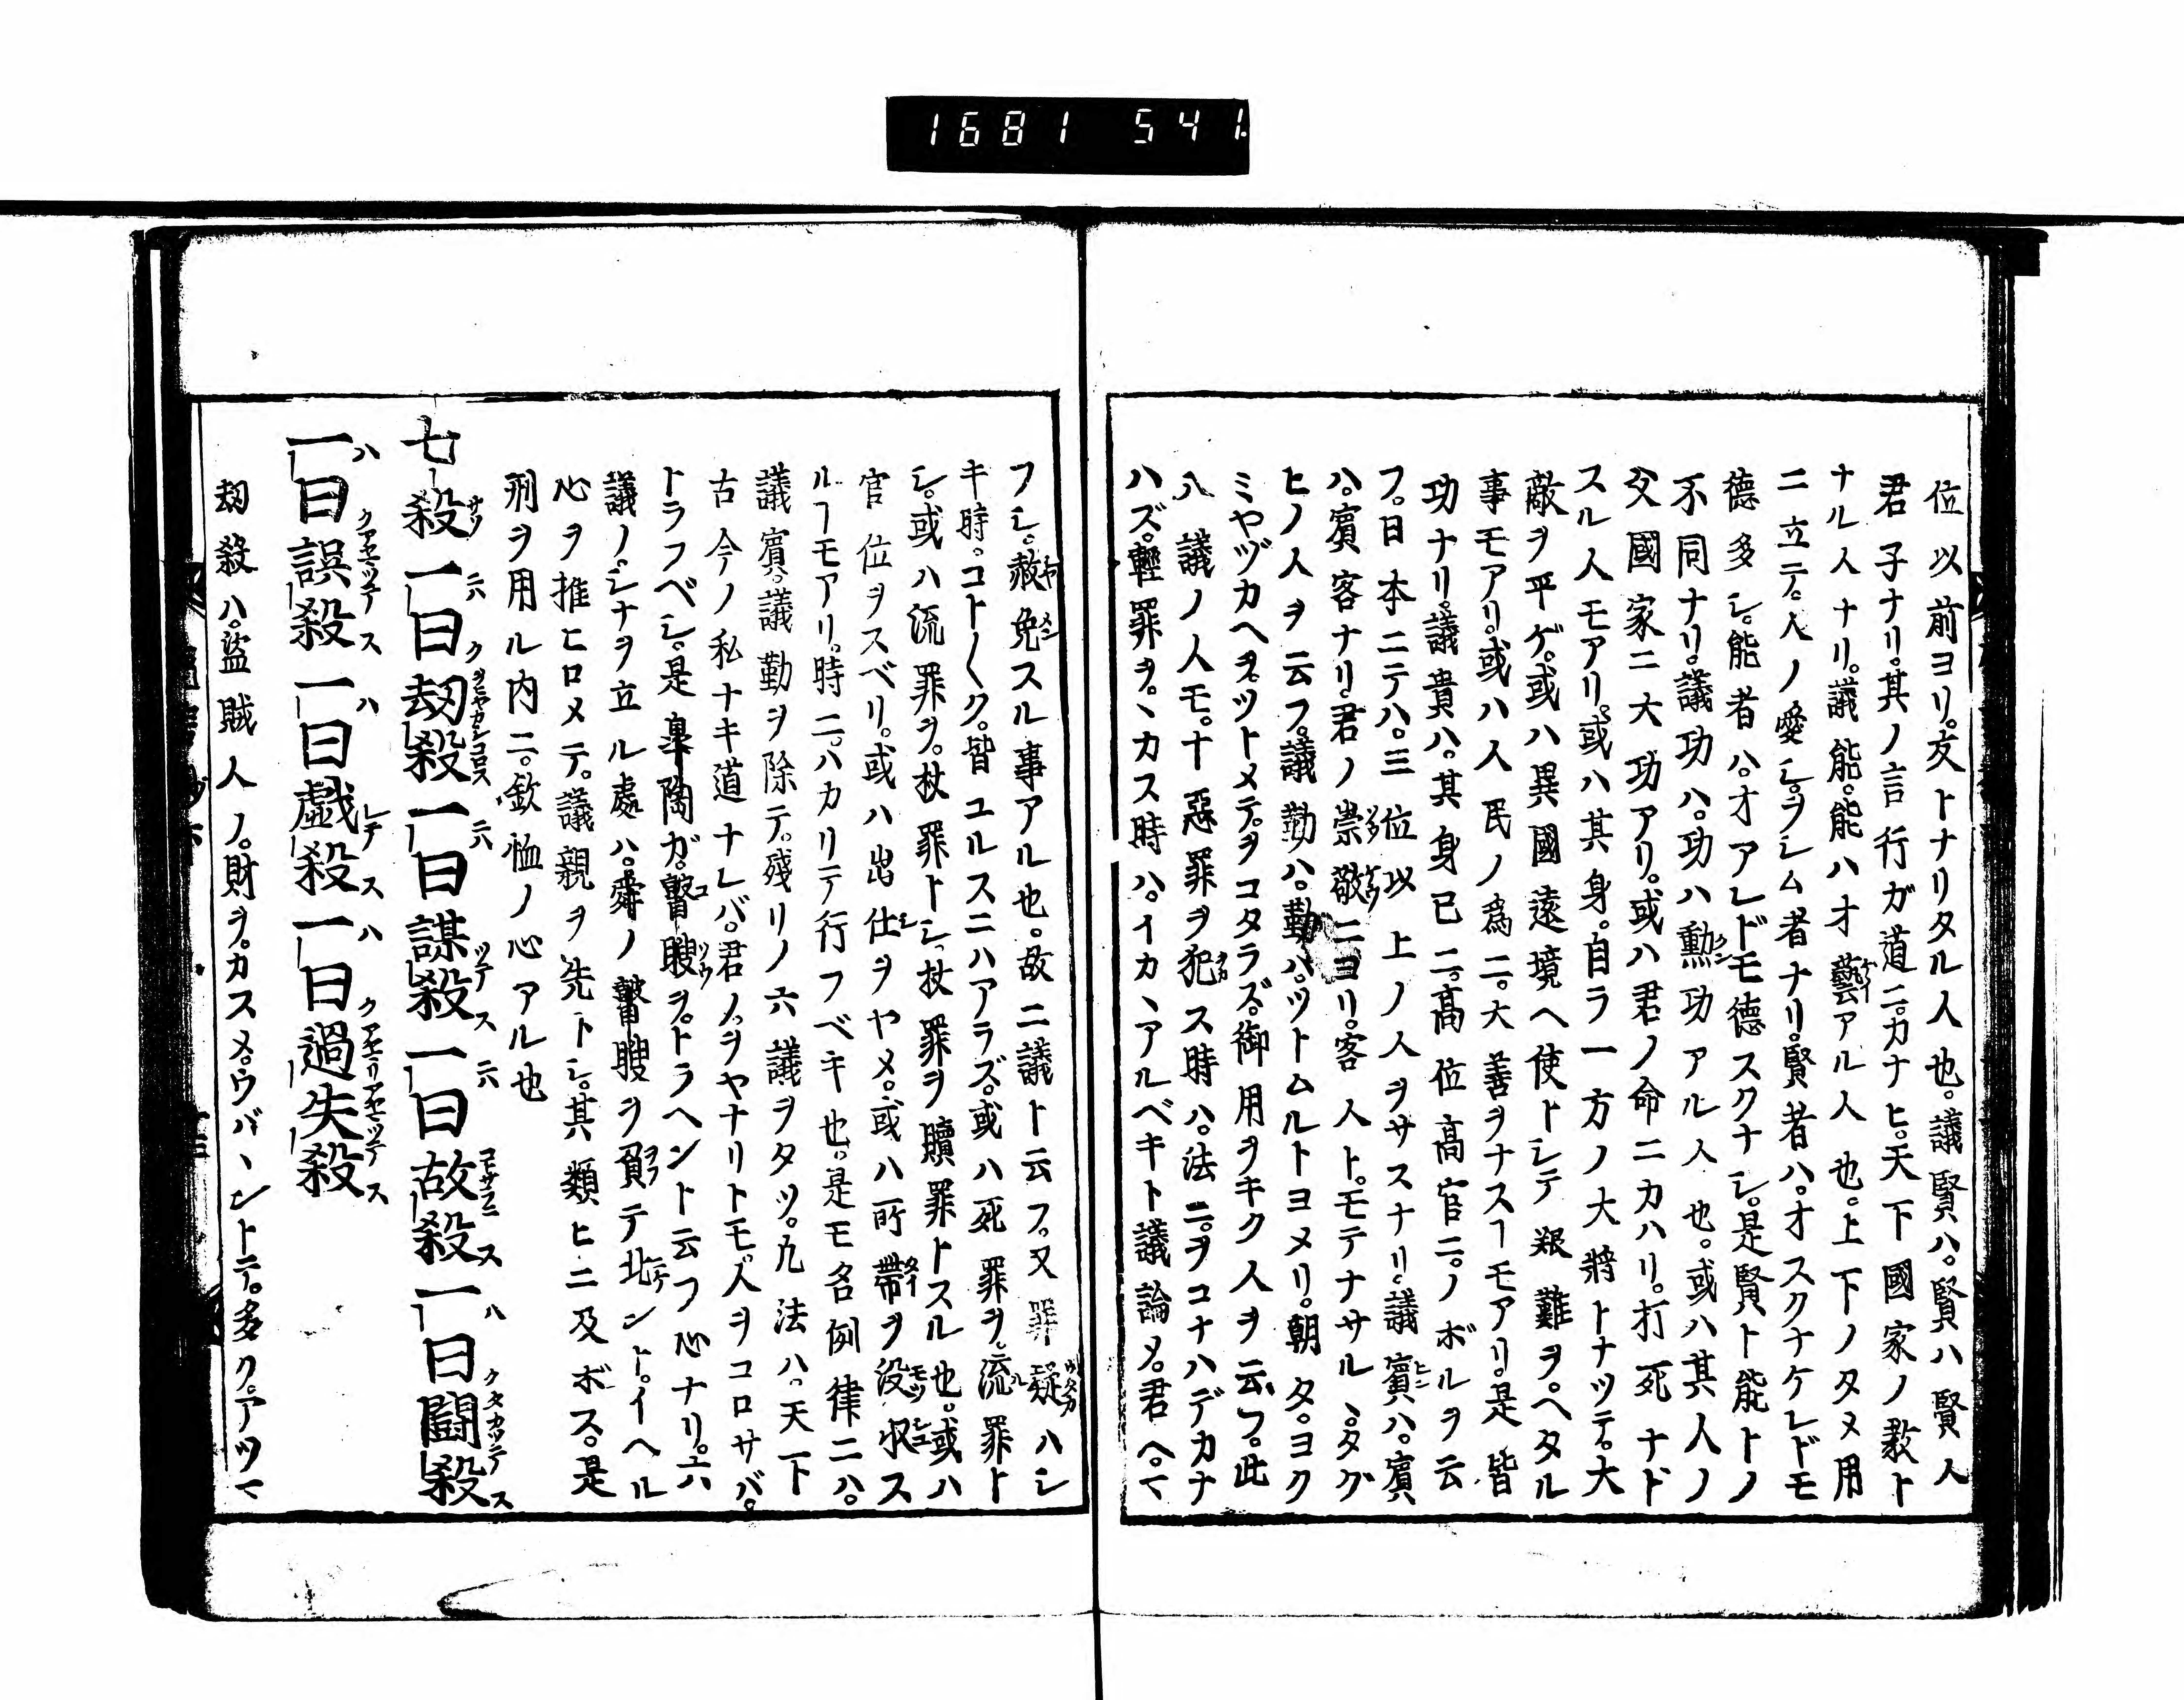 1681 541
位以前ヨリ。友トナリタル人也。議賢ハ。賢ハ賢人
君子ナリ。其ノ言行ガ道ニ。カナヒ。天下國家ノ教ト
ナル人ナリ。議能。能ハオ藝アル人也。上下ノタメ用
ニ立テ。人ノ愛シ。ヲシム者ナリ。賢者ハ。オスクナケレドモ
德多シ。能者ハ。オアレドモ德スクナシ。是賢ト能トノ
不同ナリ。議功ハ。功ハ勳功アル人也。或ハ其人ノ
父國家ニ大功アリ。或ハ君ノ命ニカハリ。打死ナド
スル人モアリ。或ハ其身。自ラ一方ノ大將トナツテ。大
敵ヲ平ゲ。或ハ異國遠境ヘ使トシテ艱難ヲ。ヘタル
事モアリ。或ハ人民ノ爲ニ。大善ヲナスヿモアリ。是皆
功ナリ。議貴ハ。其身已ニ。高位高官ニ。ノボルヲ云
フ。日本ニテハ。三位以上ノ人ヲサスナリ。議賓ハ。賓
ハ。賓客ナリ。君ノ崇敬ニヨリ。客人ト。モテナサルヽ。タグ
ヒノ人ヲ云フ。議勤ハ。勤ハ。ツトムルトヨメリ。朝タ。ヨク
ミヤヅカヘヲ。ツトメテ。ヲコタラズ。御用ヲキク人ヲ云フ。此
八議ノ人モ。十惡罪ヲ犯ス時ハ。法ニ。ヲコナハデカナ
ハズ。輕罪ヲ。ヽカス時ハ。イカヽアルベキト議論メ。君ヘ。マ
フシ。赦免スル事アル也。故ニ議ト云フ。又罪疑ハシ
キ時。コト〱ク。皆ユルスニハアラズ。或ハ死罪ヲ。流罪ト
シ。或ハ流罪ヲ。杖罪トシ。杖罪ヲ贖罪トスル也。或ハ
官位ヲスベリ。或ハ出仕ヲヤメ。或ハ所帶ヲ沒収ス
ルヿモアリ。時ニ。ハカリテ行フベキ也。是モ名例律ニハ。
議賓。議勤ヲ除テ。殘リノ六議ヲタツ。九法ハ。天下
古今ノ私ナキ道ナレバ。君ノ。ヲヤナリトモ。人ヲコロサバ。
トラフベシ。是皐陶ガ。瞽瞍ヲ。トラヘント云フ心ナリ。六
議ノ。シナヲ立ル處ハ。舜ノ瞽瞍ヲ負テ北ント。イヘル
心ヲ推ヒロメテ。議親ヲ先トシ。其類ヒニ及ボス。是
刑ヲ用ル内ニ。欽恤ノ心アル也
七殺一曰劫殺一曰謀殺一曰故殺一曰鬪殺
一曰誤殺一曰戯殺一曰過失殺
劫殺ハ。盜賊人ノ。財ヲ。カスメ。ウバヽントテ。多ク。アツマ